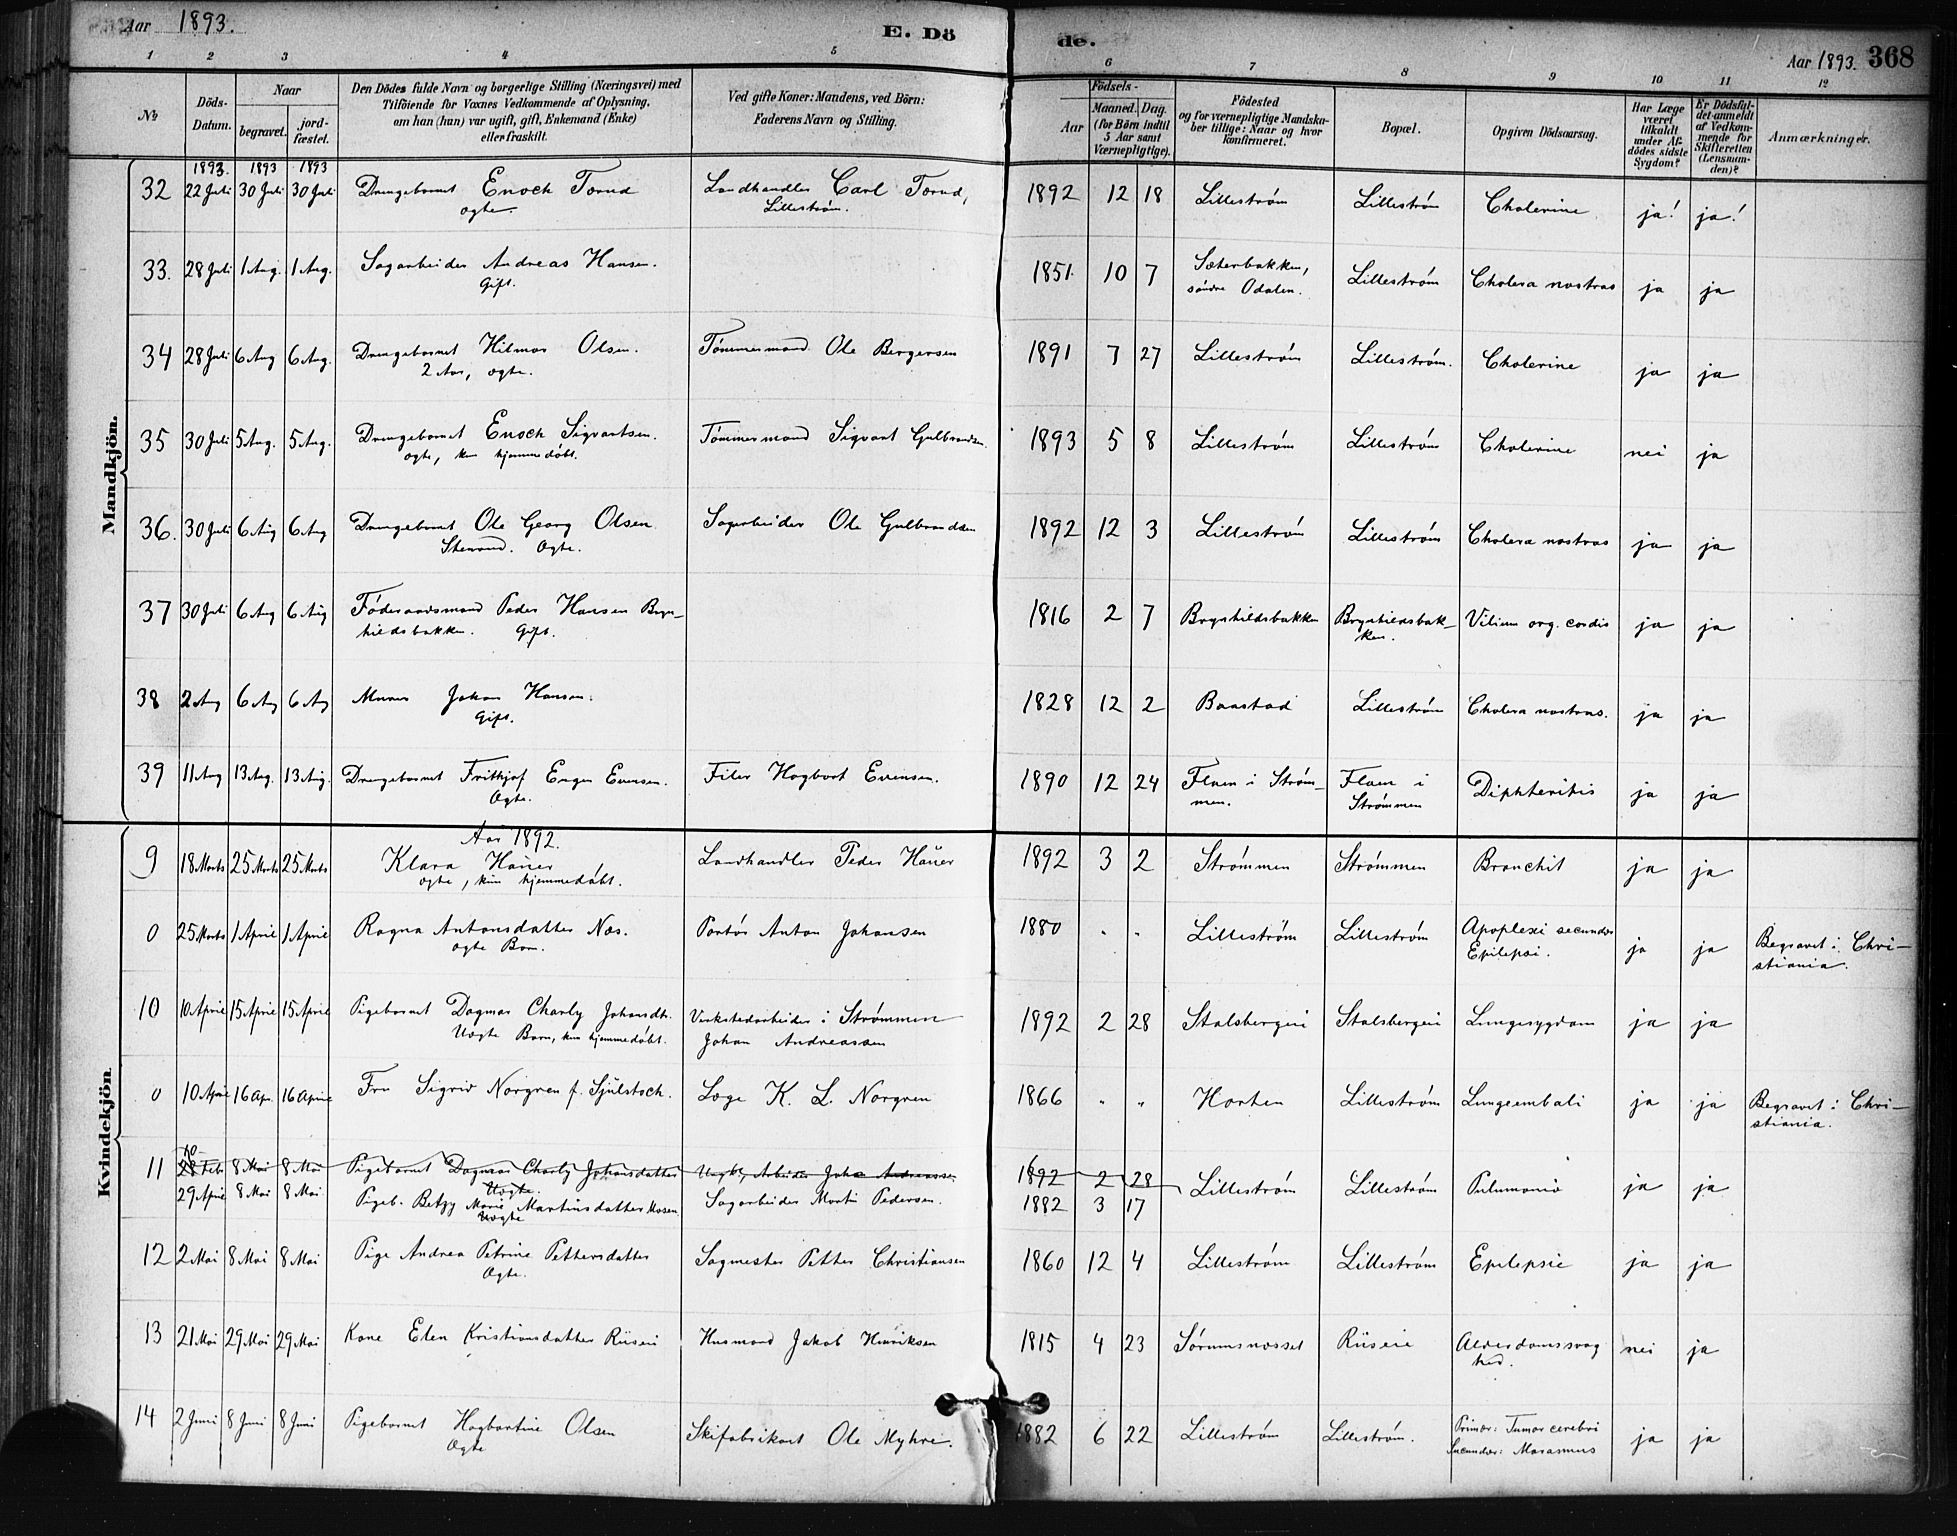 Aar 1893. E. Dö
de. Aar 1893. 368
1 2 3 4 5 6 7 8 9 10 11 12
№ Döds-Datum. Naar begravet. jord-fæstet. Den Dödes fulde Navn og borgerlige Stilling (Næringsvei) med Tilföiende for Voxnes Vedkommende af Oplysning, om han (hun) var ugift, gift, Enkemand (Enke) eller fraskilt. Ved gifte Koner: Mandens, ved Börn: Faderens Navn og Stilling. Födsels- Aar Maaned. Dag. (for Börn indtil 5 Aar samt Værnepligtige). Födested og for værnepligtige Mandskaber tillige: Naar og hvor konfirmeret. Bopæl. Opgiven Dödsaarsag. Har Læge været tilkaldt under Afdödes sidste Sygdom? Er Dödsfaldet anmeldt af Vedkommende for Skifteretten (Lensmanden)? Anmærkninger.
Mandkjön.
1893. 1893 1893
32 22 Juli 30 Juli 30 Juli Drengebarnet Enoch Torud Landhandler Carl Torud, 1892 12 18 Lillestrøm Lillestrøm Cholerine ja! ja!
ægte. Lillestrøm.
33. 28 Juli 1 Aug. 1 Aug. Sagarbeider Andreas Hansen. 1851. 10 7 Sæterbakken, Lillestrøm Cholera nostras ja ja
Gift. søndre Odalen.
34 28 Juli 6 Aug 6 Aug. Drengebarnet Hilmar Olsen. Tømmermand Ole Bergersen 1891 7 27 Lillestrøm Lillestrøm. Cholerine ja ja
2 Aar, ægte.
35 30 Juli 5 Aug. 5 Aug. Drengebarnet Enoch Sigvartsen. Tømmermand Sigvart Gulbrandsen 1893 5 8 Lillestrøm Lillestrøm Cholerine nei ja
ægte, kun hjemmedøbt.
36. 30 Juli 6 Aug 6 Aug Drengebarnet Ole Georg Olsen. Sagarbeider Ole Gulbrandsen 1892 12 3 Lillestrøm Lillestrøm Cholera nostras ja ja
Ægte.
37 30 Juli 6 Aug 6 Aug Føderaadsmand Peder Hansen Bryn- 1816 2 7 Brynhildsbakken Brynhildsbak- Vitium org. cordis ja ja
hildsbakken. Gift. ken.
38 2 Aug 6 Aug 6 Aug Murer Johan Hansen. 1828 12 2 Baastad Lillestrøm Cholera nostras. ja ja
Gift.
39 11 Aug 13 Aug. 13 Aug. Drengebarnet Frithjof Evensen. Filer Hagbart Evensen. 1890 12 24 Flaen i Strøm- Flaen i Diphteritis ja ja
Ægte. men. Strømmen
Kvindekjön
Aar 1892.
9 18 Marts 25 Marts 25 Marts Klara Haüer Landhandler Peder Haüer 1892 3 2 Strømmen Strømmen Bronchit ja ja
ægte, kun hjemmedøbt.
0 25 Marts 1 April 1 April Ragna Antonsdatter Næs. Anton Johansen 1880 " " Lillestrøm Lillestrøm Apoplexi secundær Epilepsi. ja ja Begravet i Chri-
ægte Barn. stiania.
10 10 April 15 April 15 April Pigebarnet Dagmar Charly Johansdt. Verkstedarbeider i Strømmen 1892 2 28 Stalsbergeie Stalsbergeie Lungesygdom ja ja
Uægte Barn, kun hjemmedøbt. Johan Andreassen
0 10 April 16 Apr. 16 April Fru Sigrid Norgren f. Sjülstoch. Læge K. L. Norgren 1866 " " Horten Lillestrøm Lungeemboli ja ja Begravet i Chri-
stiania.
11 28 Febr 8 Mai 8 Mai Pigebarnet Dagmar Charly Johansdatter Johan Andreassen 1892 2 28
Uægte.
29 April 8 Mai 8 Mai Pigeb. Betzy Marie Martinsdatter Mosen Sagarbeider Martin Pedersen. 1882 3 17 Lillestrøm Lillestrøm ja ja
Uægte
12 2 Mai 8 Mai 8 Mai Pige Andrea Petrine Pettersdatter Sagmester Petter Christiansen 1860 12 4 Lillestrøm Lillestrøm Epilepsie ja ja
Ægte.
13 21 Mai 29 Mai 29 Mai Kone Elen Kristiansdatter Riiseie Husmand Jakob Henriksen 1815 4 23 Sørumsnæsset Riiseie Alderdomssvag nei ja
hed.
14 2 Juni 8 Juni 8 Juni Pigebarnet Hagbartine Olsen Skifabrikant Ole Myhre. 1882 6 22 Lillestrøm Lillestrøm. Primær: Tumor cerebri ja ja
Ægte Secundær: Marasmus